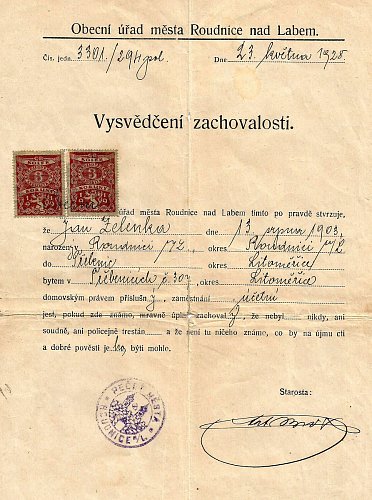 Obecní úřad města Roudnice nad Labem.
Čís. jedn. 3301/29 pol Dne 23. května 1928.
Vysvědčení zachovalosti.
KOLEK
3
KORUNY
KOLEK
3
KORUNY
úřad města Roudnice nad Labem tímto po pravdě stvrzuje,
že Jan Zelenka dne 13. srpna 1903,
narozen v Roudnici n/L okres Roudnici n/L
do okres Litoměřice
bytem v Třebenicích č. 307, okres Litoměřice
domovským právem příslušný, zaměstnání účetní
jest, pokud zde známo, mravně úplně zachovalý, že nebyl nikdy, ani
soudně, ani policejně trestán a že není tu ničeho známo, co by na újmu cti
a dobré pověsti jeho, býti mohlo.
Starosta:
PEČEŤ MĚSTA
ROUDNICE n/L.